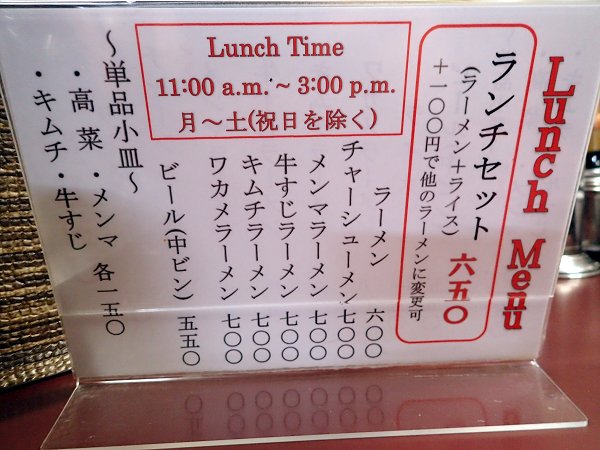 Lunch Menu
ランチセット 六五〇
(ラーメン＋ライス)
＋一〇〇円で他のラーメンに変更可
Lunch Time
11:00 a.m.~ 3:00 p.m.
月～土(祝日を除く)
ラーメン 六〇〇
チャーシューメン 七〇〇
メンマラーメン 七〇〇
牛すじラーメン 七〇〇
キムチラーメン 七〇〇
ワカメラーメン 七〇〇
ビール(中ビン) 五五〇
～単品小皿～
・高菜・メンマ 各一五〇
・キムチ・牛すじ